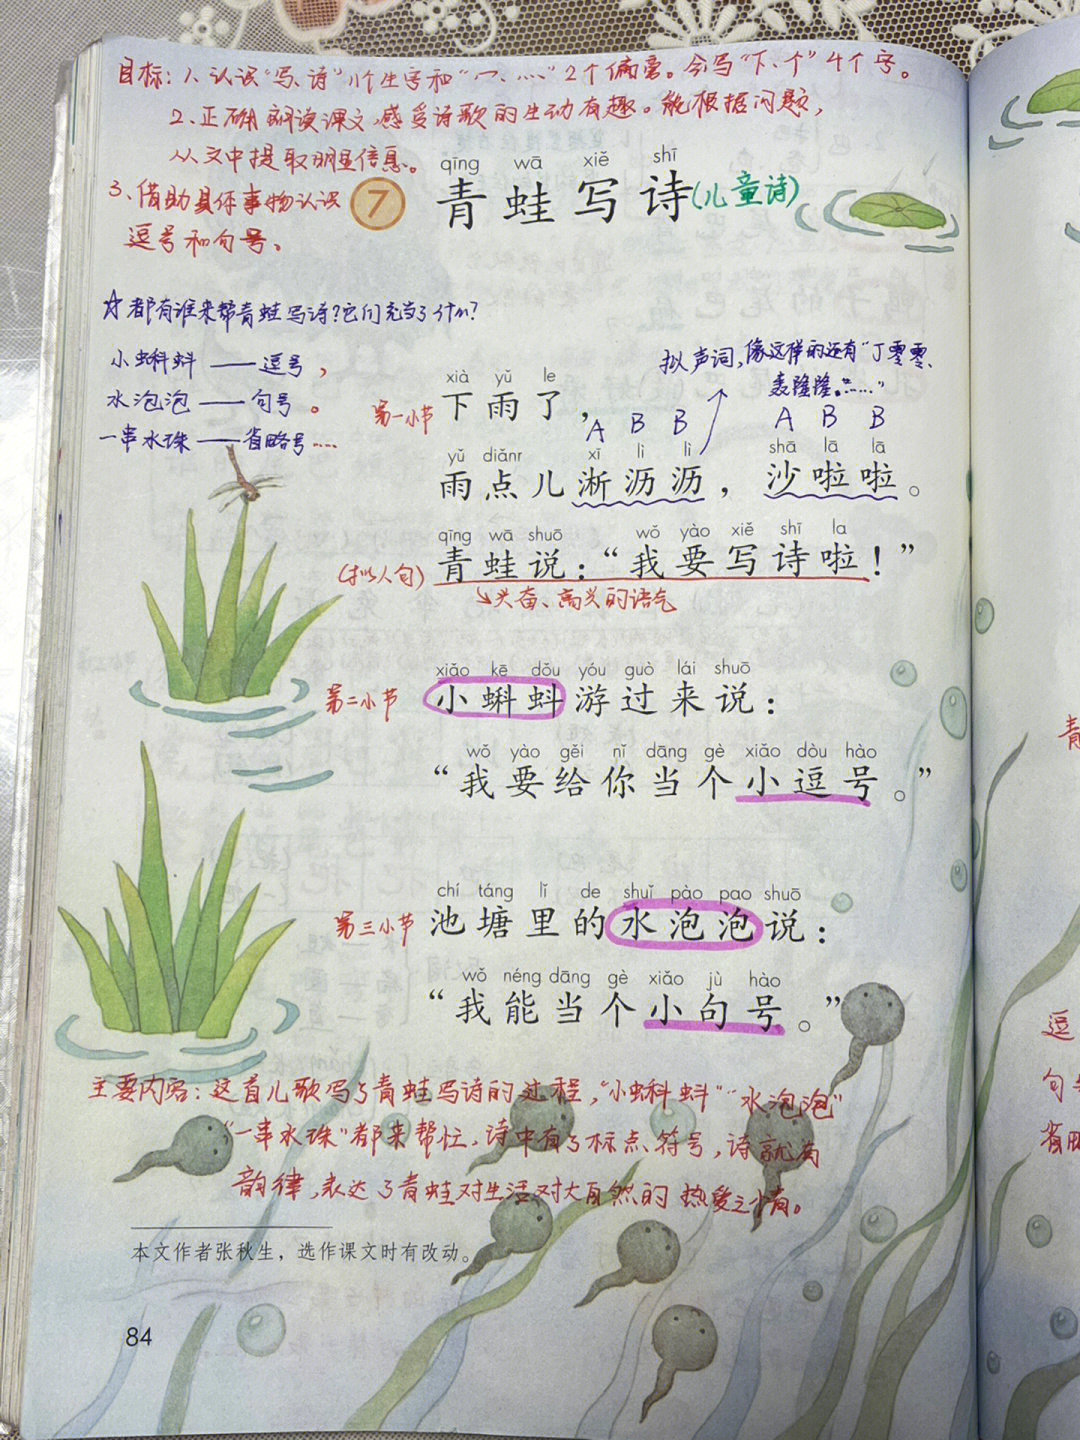 目标:1、认识"写、诗"11个生字和"冖、灬"2个偏旁。会写"下、个"4个字。
2、正确朗读课文,感受诗歌的生动有趣。能根据问题,
从文中提取明显信息。
3、借助具体事物认识
逗号和句号。
qīng wā xiě shī
7 青蛙写诗(儿童诗)
☆都有谁来帮青蛙写诗?它们充当了什么?
小蝌蚪——逗号,
水泡泡——句号。
一串水珠——省略号……
拟声词,像这样的还有"丁零零、
轰隆隆。……"
xià yǔ le
第一小节 下雨了,
A B B A B B
yǔ diǎnr xī lì lì shā lā lā
雨点儿淅沥沥,沙啦啦。
qīng wā shuō wǒ yào xiě shī la
(拟人句)青蛙说:“我要写诗啦!”
↘兴奋、高兴的语气
xiǎo kē dǒu yóu guò lái shuō
第二小节 小蝌蚪游过来说:
wǒ yào gěi nǐ dāng gè xiǎo dòu hào
“我要给你当个小逗号。”
chí táng lǐ de shuǐ pào pao shuō
第三小节 池塘里的水泡泡说:
wǒ néng dāng gè xiǎo jù hào
“我能当个小句号。”
主要内容:这首儿歌写了青蛙写诗的过程,"小蝌蚪""水泡泡"
"一串水珠"都来帮忙,诗中有了标点符号,诗就有
韵律,表达了青蛙对生活对大自然的热爱之情。
本文作者张秋生,选作课文时有改动。
84
青
逗
句
省略